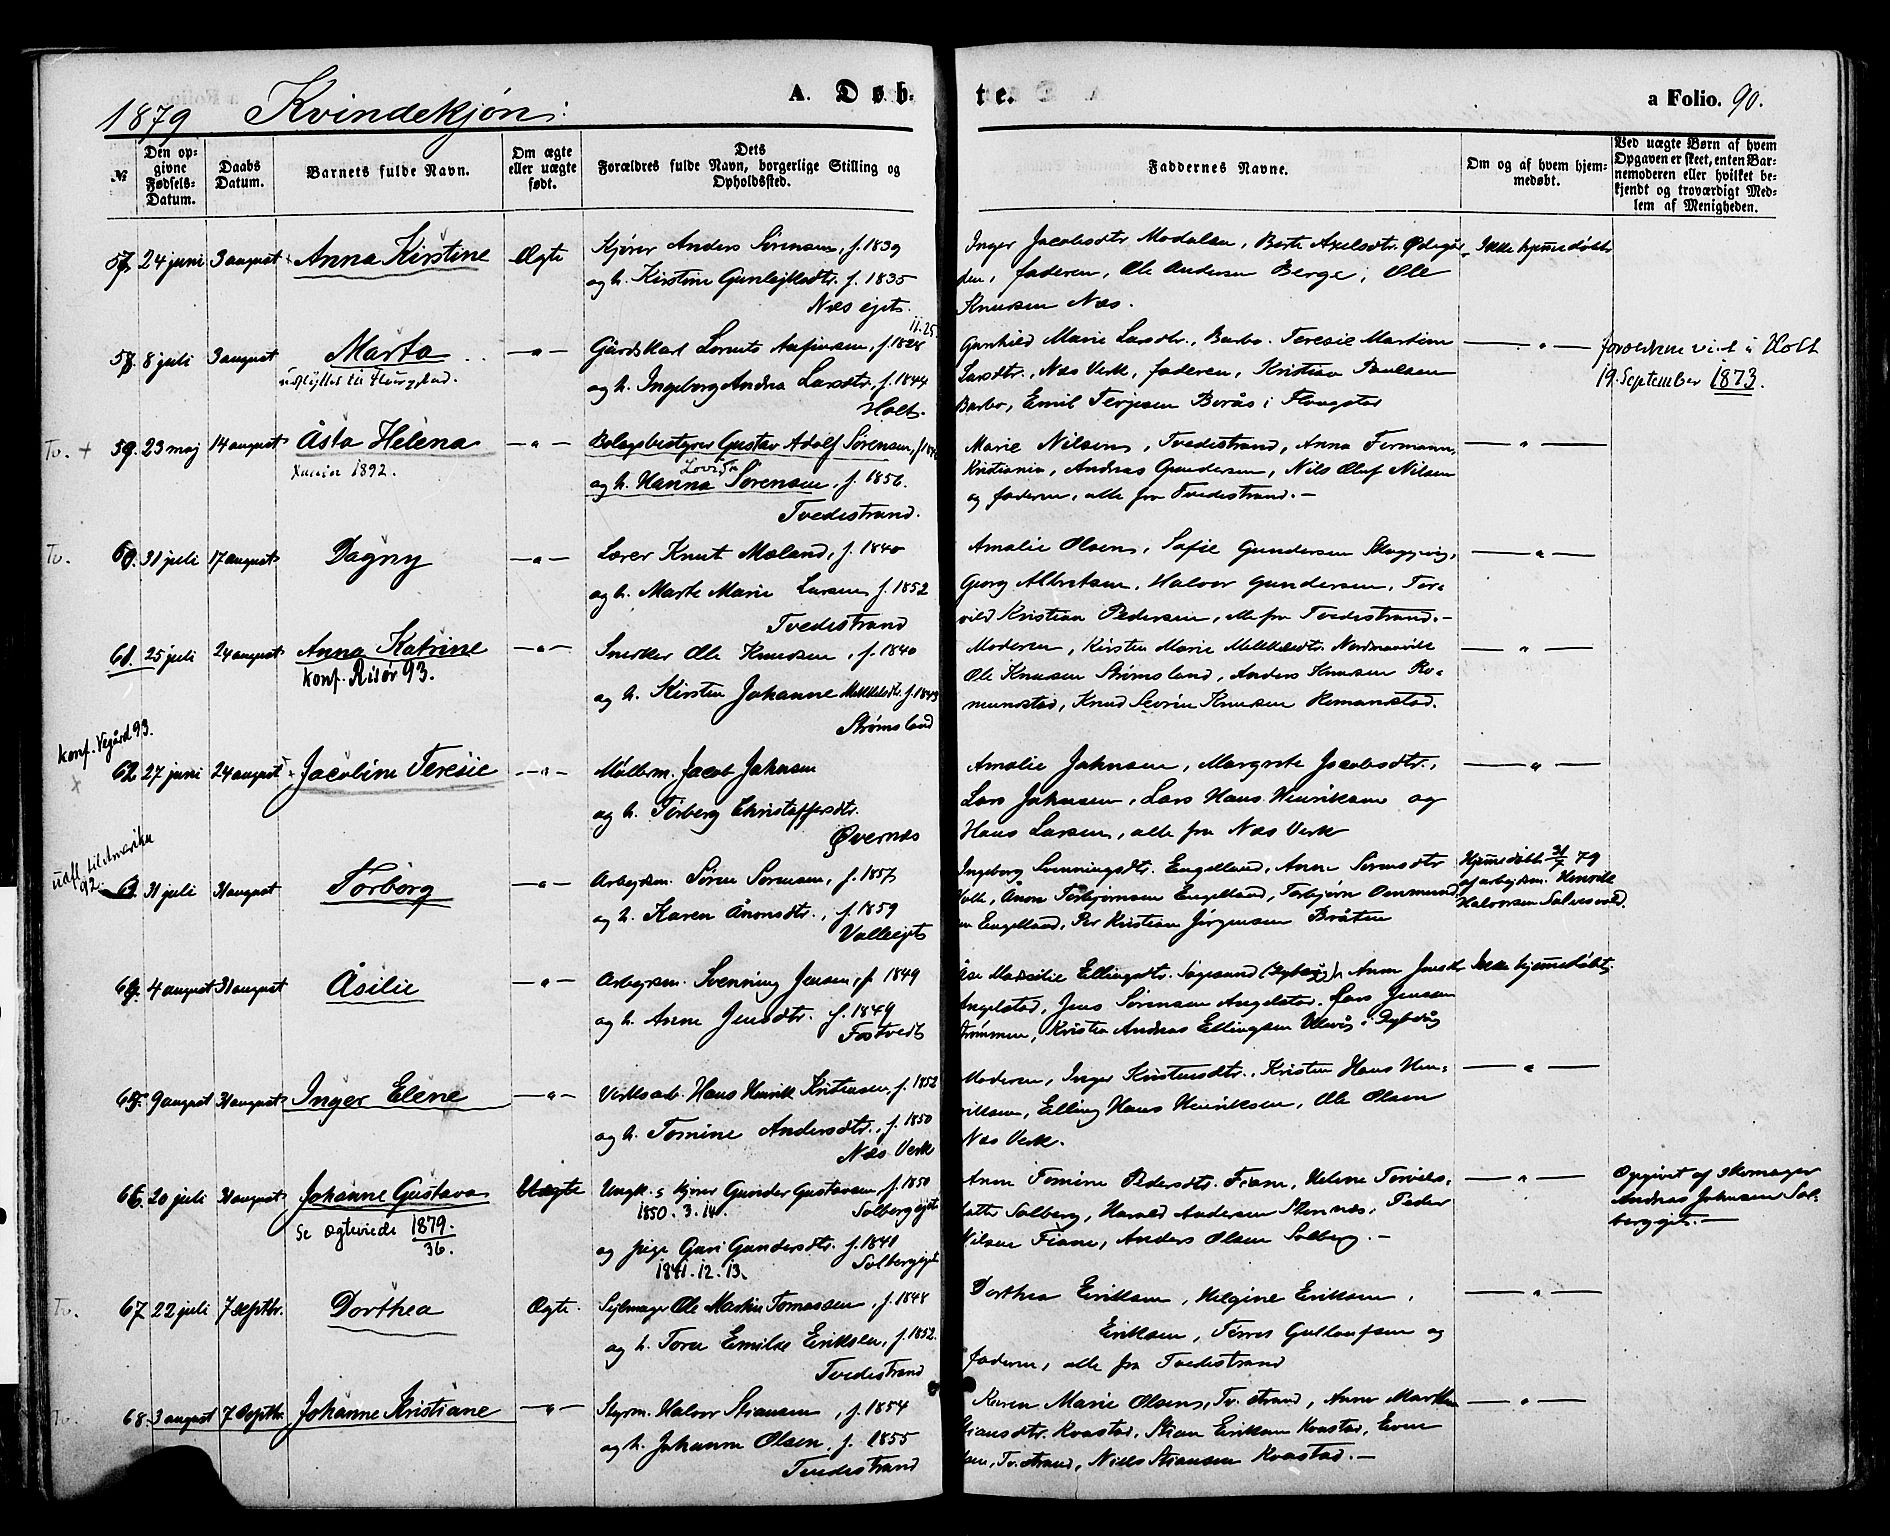 1879 Kvindekjøn:
A. Døb-
te.
a Folio. 90.
№
Den op-
givne
Fødsels-
Datum.
Daabs
Datum.
Barnets fulde Navn.
Om ægte
eller uægte
født.
Dets
Forældres fulde Navn, borgerlige Stilling og
Opholdssted.
Faddernes Navne.
Om og af hvem hjem-
medøbt.
Ved uægte Børn af hvem
Opgaven er skeet, enten Bar-
nemoderen eller hvilket be-
kjendt og troværdigt Med-
lem af Menigheden.
57. 24 juni 3 august Anna Kirstine Ægte
Kjører Anders Sørensen, f. 1839
og h. Kirstine Gunlejksdtr. f. 1835
Næs ejet.
Inger Jacobsdtr. Modalen, Berte Axelsdtr. Ødegår-
den, faderen, Ole Andersen Berge, Ole
Knudsen Næs.
Ikke hjemmedøbt
58. 8 juli 3 august Marta — " —
Gårdskarl Lorents f. 1828
11.25
og h. Ingeborg Andrea Larsdtr. f. 1844
Holt.
Gunhild Marie Larsdtr., Barbo. Teresie Martine
Larsdtr., Næs Verk, faderen, Kristian Paulsen
Barbo, Emil Terjesen Borås i Flougstad
— " —
viet i Holt
19. September 1873.
Tv. + 59. 23 maj 14 august Åsta Helena — " —
1892.
Bolagsbestyrer Gustav Adolf Sørensen,
Lovisa
og h. Hanna Sørensen, f. 1856.
Tvedestrand.
Marie Nilsen, Tvedestrand, Anna Fermann,
Kristiania, Andreas Gundersen, Nils Oluf Nilsen
og faderen, alle fra Tvedestrand. —
— " —
Tv. 60. 31 juli 17 august Dagny — " —
Lærer Knut Mæland, f. 1840
og h. Marte Marie Larsen f. 1852
Tvedestrand
Amalie Olsen, Sofie Gundersen
Georg Albretsen, Halvor Gundersen, Tor-
vild Kristian Pedersen, alle fra Tvedestrand. —
— " —
61. 25 juli 24 august Anna Katrine — " —
konf. Risør 93.
Snerker Ole Knudsen, f. 1840
og h. Kirsten Johanne Mikkelsdtr. f. 1843
Strømsland
Moderen, Kirsten Marie Mikkelsdtr.
Ole Knudsen Strømsland, Anders Knudsen Ro-
mundstad, Knud Severin Knudsen Romundstad.
— " —
konf. Vegård 93.
x 62. 27 juni 24 august Jacobine Teresie — " —
Møllerm. Jacob Johnsen
og h. Torberg Christoffersdtr.
Øvernes
Amalie Johnsen, Margrete Jacobsdtr.,
Lars Johnsen, Lars Hans Henriksen og
Hans Larsen, alle fra Næs Verk
— " —
udfl. til Amerika
92.
63. 31 juli 31 august Torborg — " —
Arbejdsm. Søren Sørensen, f. 1857
og h. Karen Ånonsdtr., f. 1859
Valleejet
Ingeborg Svenningsdtr. Engelland, Anne Sørensdtr.
Valle, Ånon Torbjørnsen Engelland, Torbjørn Ommund-
sen Engelland, Per Kristian Jørgensen Bråten
Hjemmedøbt 31/7 79
af arbejdsm. Henrik
Halvorsen
64. 4 august 31 august Åsilie — " —
Arbejdsm. Svenning Jensen, f. 1849
og h. Anne Jensdtr. f. 1849
Fostvedt
Åse Marsilie Ellingsdtr. Søgesund (Dybvåg), Anne Jensdtr.
Angelstad, Jens Sørensen Angelstad. Lars Jensen
Strømmen, Kristen Andreas Ellingsen Ulevåg i Dybvåg
Ikke hjemmedøbt.
65. 9 august 31 august Inger Elene — " —
Verksarb. Hans Henrik Kristensen, f. 1852
og h. Tomine Andersdtr., f. 1850
Næs Verk
Moderen, Inger Kristensdtr., Kristen Hans Hen-
riksen, Elling Hans Henriksen, Ole Olsen
Næs Verk.
— " —
66. 20 juli 31 august Johanne Gustava Uægte
Se ægteviede 1879.
36.
Ungk. & kjører Gunder Gustavsen, f. 1850
1850. 3. 14. Solbergejet
og pige Guri Gundersdtr. f. 1841
1841. 12. 13. Solbergejet
Anne Tomine Pedersdtr. Fiane, Helene Torvels-
datter Solberg, Harald Andersen Stennæs, Peder
Nilsen Fiane, Anders Olsen Solberg. —
— " —
Opgivet af skomager
Andreas Johnsen Sol-
bergejet. —
Tv. 67. 22 juli 7 septbr. Dorthea Ægte.
Sejlmager Ole Martin Tomassen, f. 1848
og h. Tora Emilie Eriksen, f. 1852.
Tvedestrand
Dorthea Eriksen, Helgine Eriksen,
Eriksen, Terres Gulloufsen og
faderen, alle fra Tvedestrand
— " —
Tv. 68. 3 august 7 septbr. Johanne Kristiane — " —
Styrm. Halvor Stiansen, f. 1854
og h. Johanne Olsen. f. 1855
Tvedestrand
Karen Marie Olsen, Tv. strand, Anne Marthe
Stiansdtr. Kvastad, Stian Eriksen Kvastad, Even
Olsen, Tv. strand, Niels Stiansen Kvastad. —
— " —